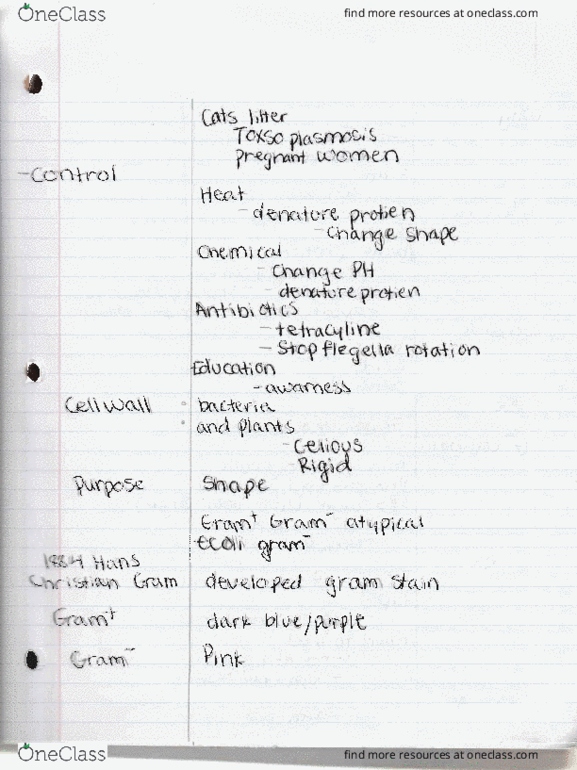 OneClass
find more resources at oneclass.com
Cats litter
Toxso plasmosis
pregnant women
-Control
Heat
- denature protien
- Change shape
Chemical
- Change PH
- denature protien
Antibiotics
- tetracyline
- Stop flegella rotation
Education
- awarness
Cell wall
bacteria
and plants
- Cellous
- Rigid
Purpose Shape
Gram+ Gram- atypical
ecoli gram-
1884 Hans
Christian Gram developed gram stain
Gram+ dark blue/purple
Gram- Pink
OneClass
find more resources at oneclass.com